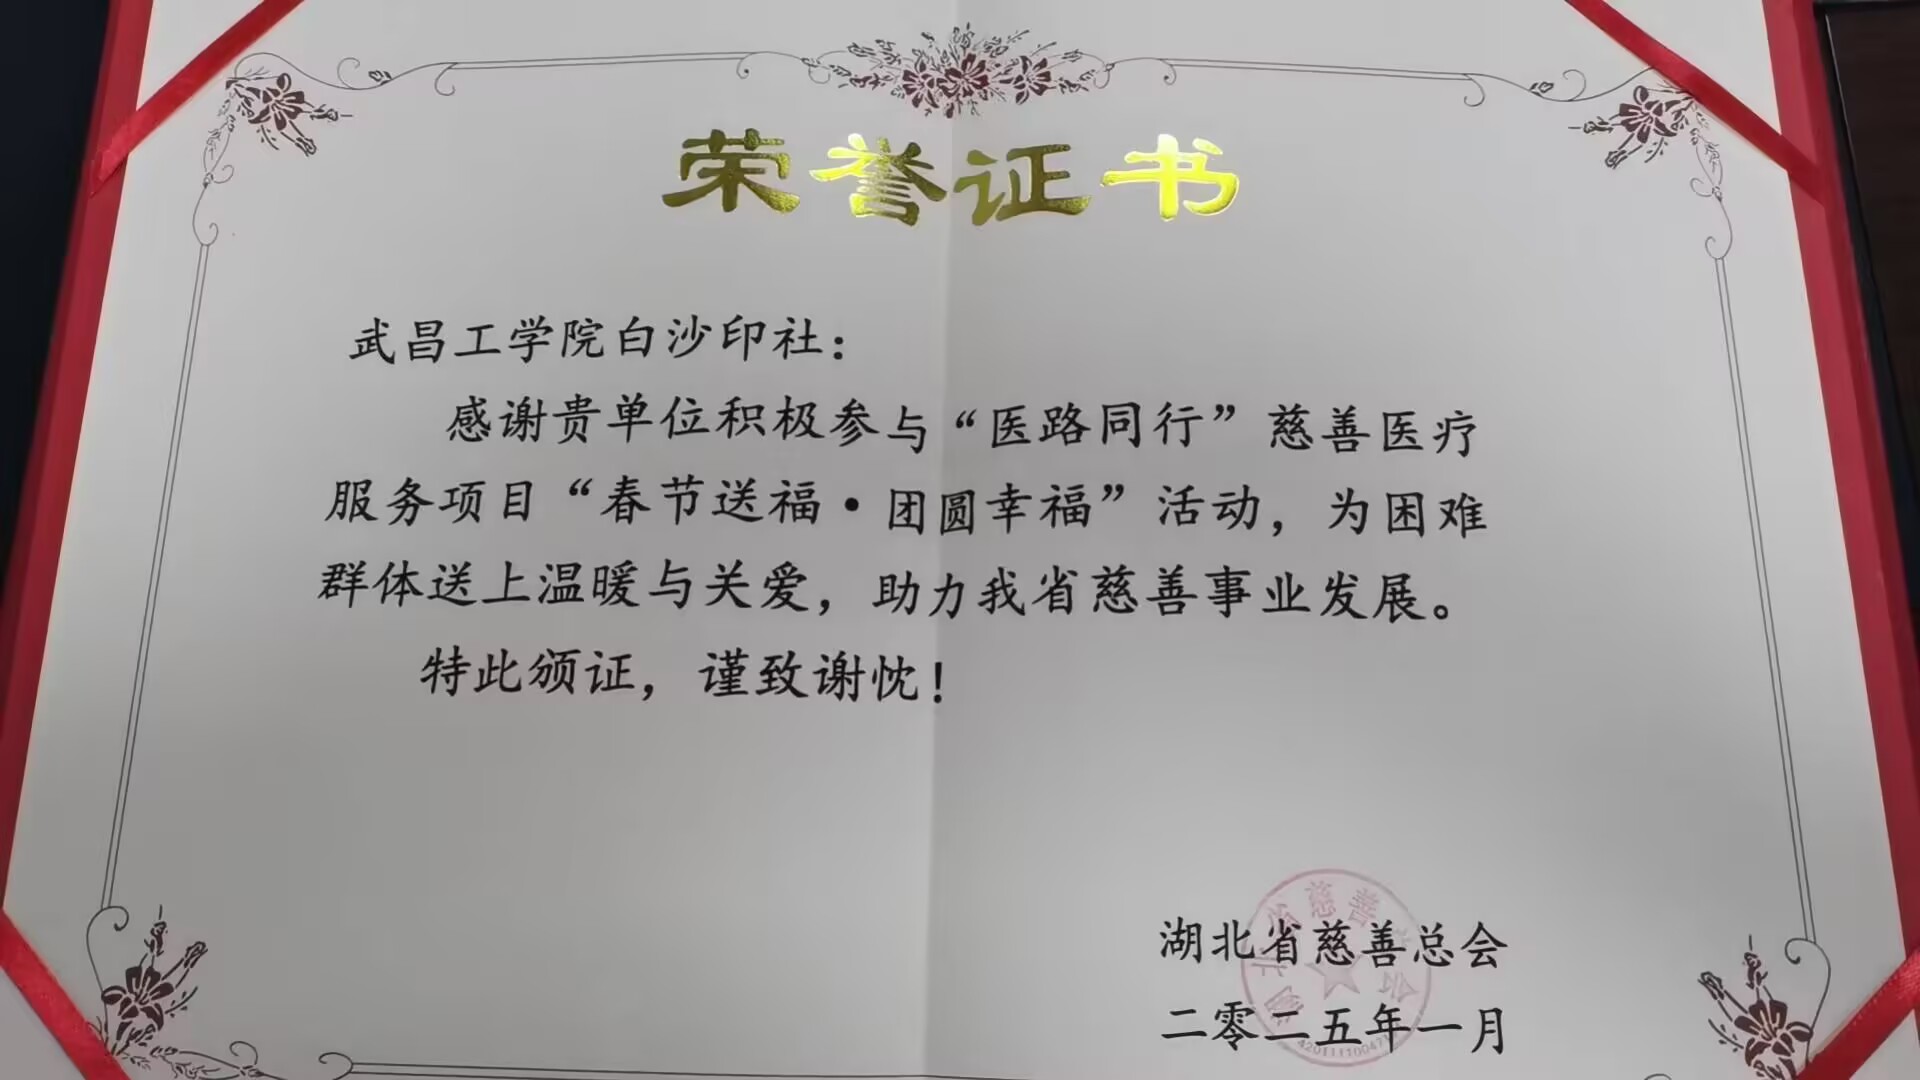 荣誉证书
武昌工学院白沙印社：
感谢贵单位积极参与“医路同行”慈善医疗
服务项目“春节送福·团圆幸福”活动，为困难
群体送上温暖与关爱，助力我省慈善事业发展。
特此颁证，谨致谢忱！
湖北省慈善总会
二零二五年一月